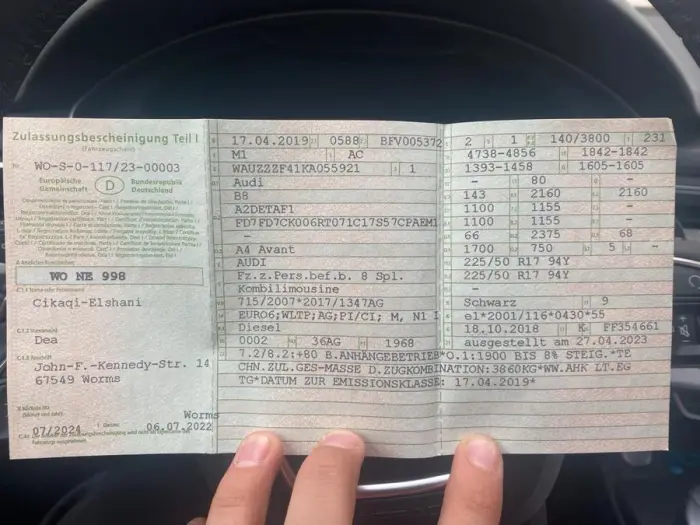 Zulassungsbescheinigung Teil I
(Fahrzeugschein)
Nr. WO-S-0-117/23-00003
Europäische Gemeinschaft D Bundesrepublik Deutschland
WO NE 998
Cikaqi-Elshani
Dea
John-F.-Kennedy-Str. 14
67549 Worms
Worms
07/2024 06.07.2022
17.04.2019 0588 BFV005372
M1 AC
WAUZZZF41KA055921 1
Audi
B8
A2DETAF1
FD7FD7CK006RT071C17S57CPAEM1
–
A4 Avant
AUDI
Fz.z.Pers.bef.b. 8 Spl.
Kombilimousine
715/2007*2017/1347AG
EURO6;WLTP;AG;PI/CI; M, N1 I
Diesel
0002 36AG 1968
2 1 140/3800 231
4738-4856 1842-1842
1393-1458 1605-1605
– 80 –
143 2160 2160
1100 1155 –
1100 1155 –
66 2375 68
1700 750 5 –
225/50 R17 94Y
225/50 R17 94Y
–
Schwarz 9
e1*2001/116*0430*55
18.10.2018 K FF354661
ausgestellt am 27.04.2023
7.2/8.2:+80 B.ANHÄNGEBETRIEB*O.1:1900 BIS 8% STEIG.*TE
CHN.ZUL.GES-MASSE D.ZUGKOMBINATION:3860KG*WW.AHK LT.EG
TG*DATUM ZUR EMISSIONSKLASSE: 17.04.2019*